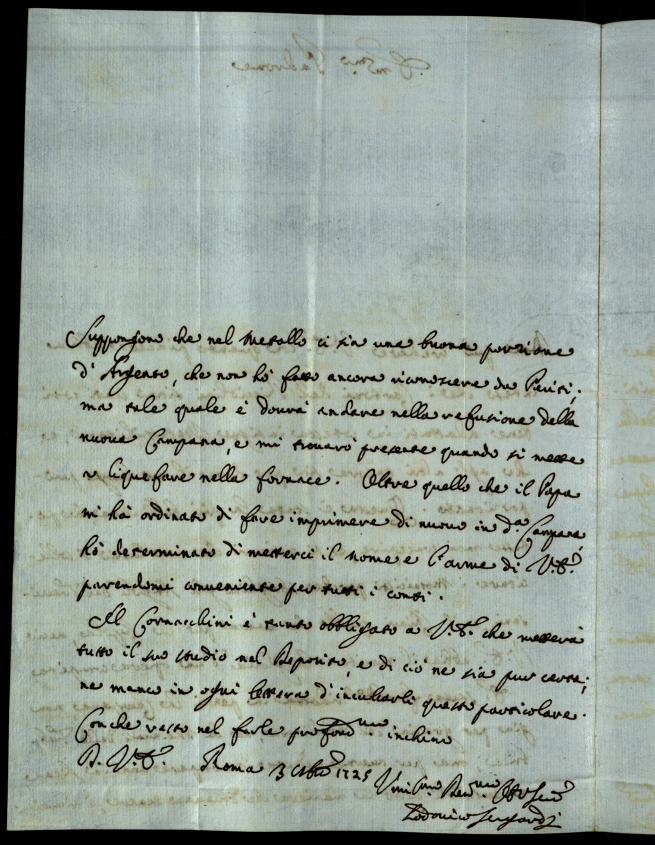 Suppongono che nel Metallo ci sia una buona porzione
d'Argento, che non hò fatto ancora riconoscere da Periti;
ma tale quale è dovrà andare nella refusione della
nuova Campana, e mi trovarò presente quando si mette
a liquefare nella fornace. Oltre quello che il Papa
mi hà ordinato di fare imprimere di nuovo in d.ª Campana,
hò determinato di metterci il nome e l'arme di V.E.
parendomi conveniente per tutti i conti.
Il Cornacchini è tanto obbligato a V.E. che metterà
tutto il suo studio nel Deposito, e di ciò ne sia pur certa;
ne manco in ogni lettera d'inculcarli questo particolare.
Con che resto nel farle profond.mo inchino
D. V.E. Roma 3 1725